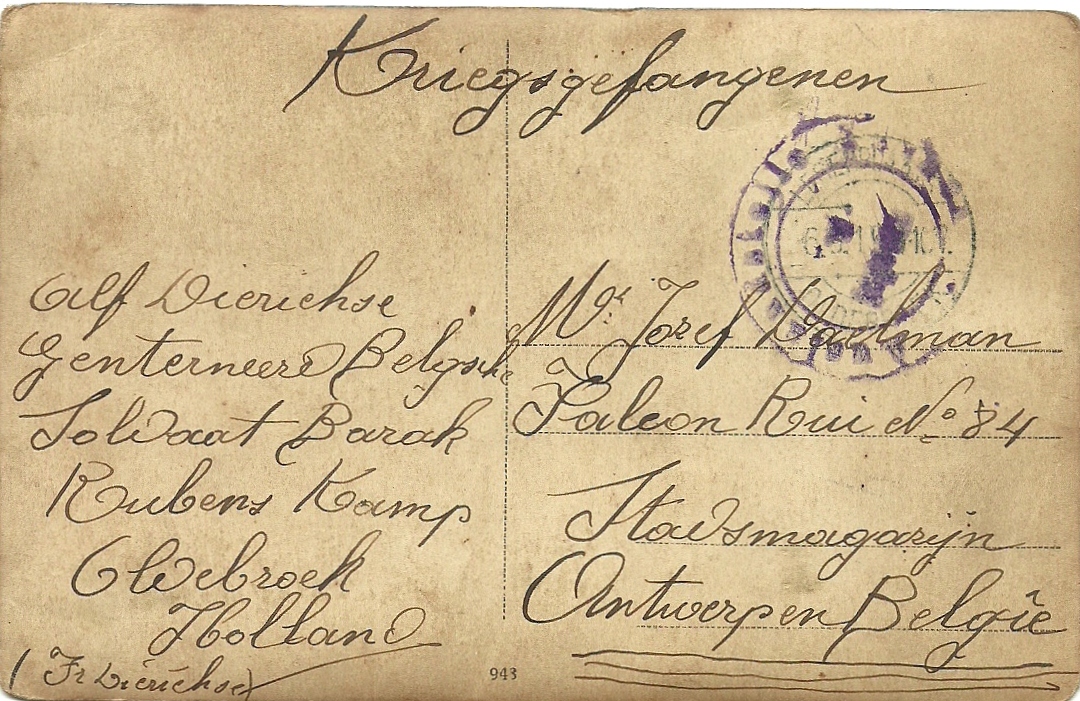 Kriegsgefangenen
Alf Dierichse
Genterneerd Belgsche
Soldaat Barak
Rubens Kamp
Oldebroek
Holland
(Fr Dierichse)
Mr. Jozef
Falcon Rui No 84
Stadsmagazijn
Antwerpen België
943